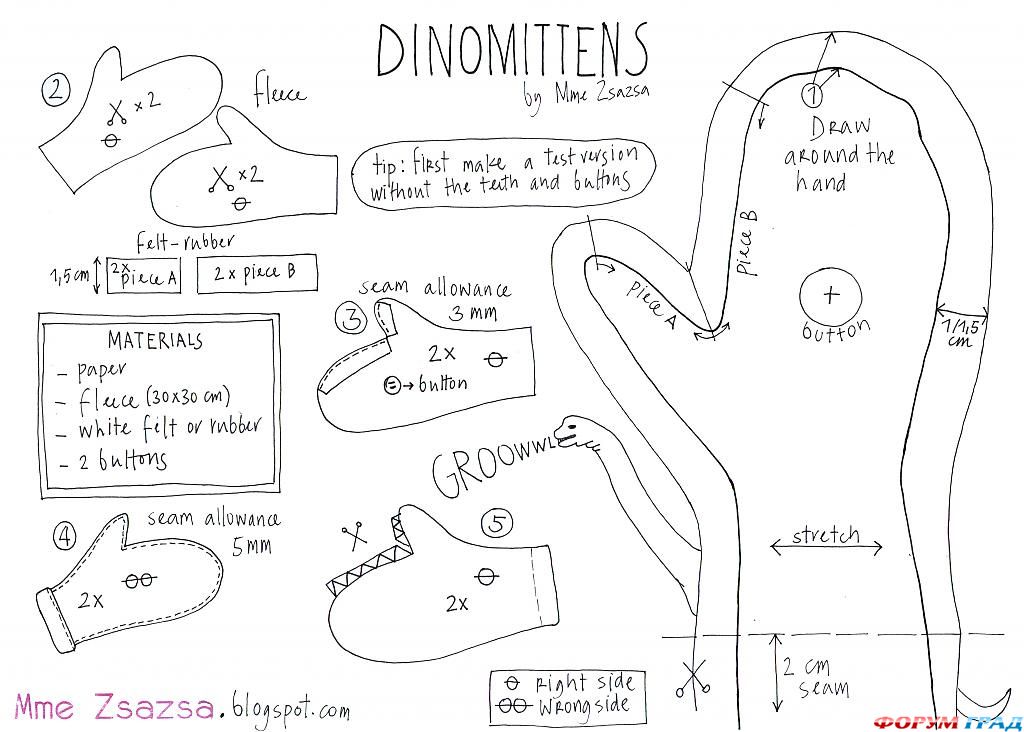 DINOMITTENS
by Mme Zsazsa
2
x 2
fleece
x 2
tip: first make a test version
without the teeth and buttons
1
Draw
around the
hand
piece B
piece A
+
button
1/1,5
cm
felt-rubber
1,5cm
2x
piece A
2 x piece B
seam allowance
3 mm
3
2x
→ button
MATERIALS
- paper
- fleece (30x30 cm)
- white felt or rubber
- 2 buttons
GROOWWL
4
seam allowance
5mm
2x
5
2x
stretch
2 cm
seam
Right side
Wrong side
Mme Zsazsa.blogspot.com
ФОРУМГРАД